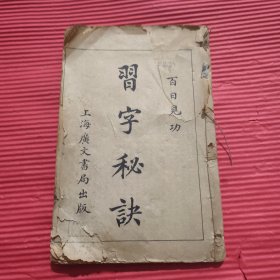 百日見功
習字秘訣
上海廣文書局出版